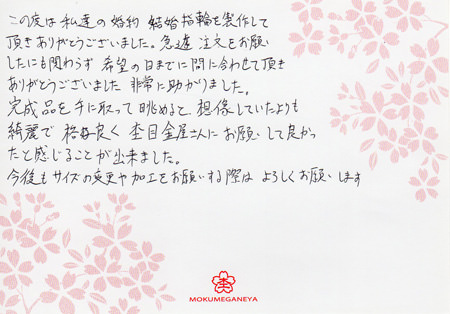 この度は私達の婚約 結婚指輪を製作して
頂きありがとうございました。急遽 注文をお願い
したにも関わらず 希望の日までに間に合わせて頂き
ありがとうございました 非常に助かりました。
完成品を手に取って眺めると、想像していたよりも
綺麗で 格好良く 杢目金屋さんに お願いして良かっ
たと感じることが出来ました。
今後もサイズの変更や加工をお願いする際は よろしくお願いします
杢
MOKUMEGANEYA